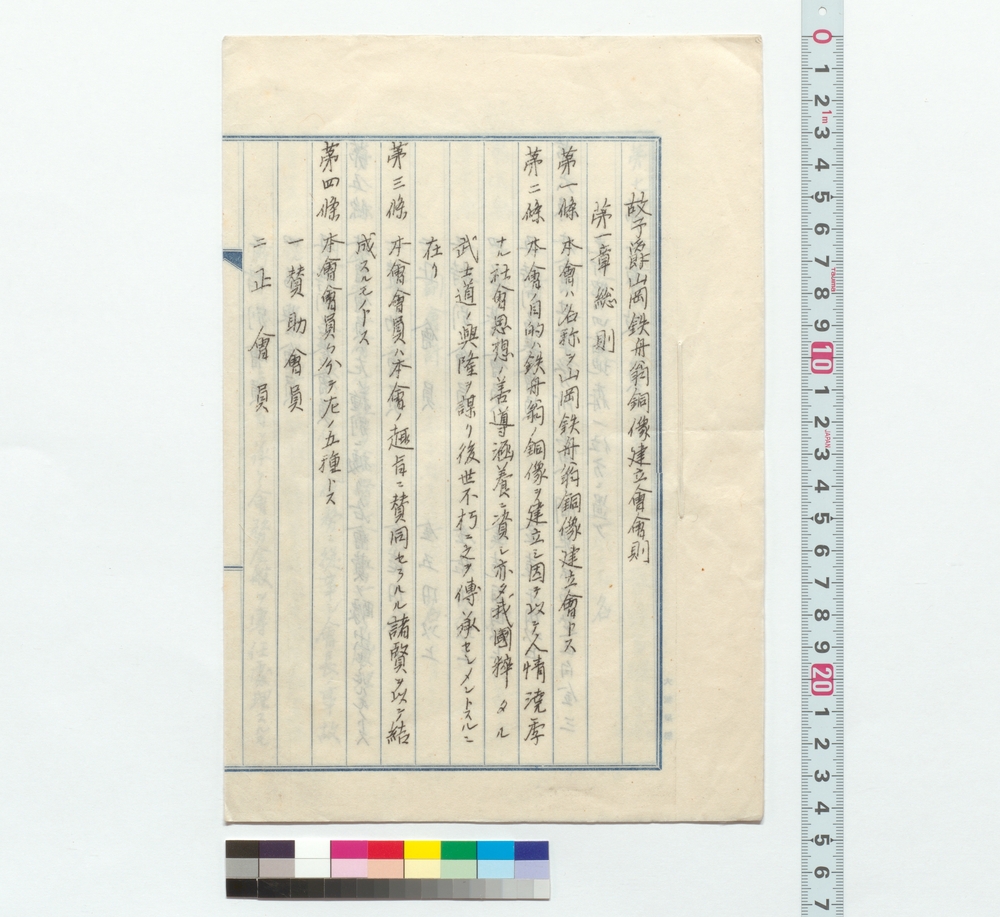 故子爵山岡鉄舟翁銅像建立會會則
第一章 総則
第一條 本會ハ名称ヲ山岡鉄舟翁銅像建立會トス
第二條 本會ノ目的ハ鉄舟翁ノ銅像ヲ建立シ因テ以テ人情澆季
ナル社會思想ノ善導涵養ニ資シ亦タ我國粹タル
武士道ノ興隆ヲ謀リ後世不朽ニ之ヲ傳承セシメントスルニ
在リ
第三條 本會會員ハ本會ノ趣旨ニ賛同セラルル諸賢ヲ以テ結
成スルモノトス
第四條 本會會員ヲ分テ左ノ五種トス
一 賛助會員
二 正會員
0
1
2
1m
3
4
5
6
7
8
9
10
1
2
JAPAN
3
4
5
6
7
8
9
20
1
2
3
4
5
6
7